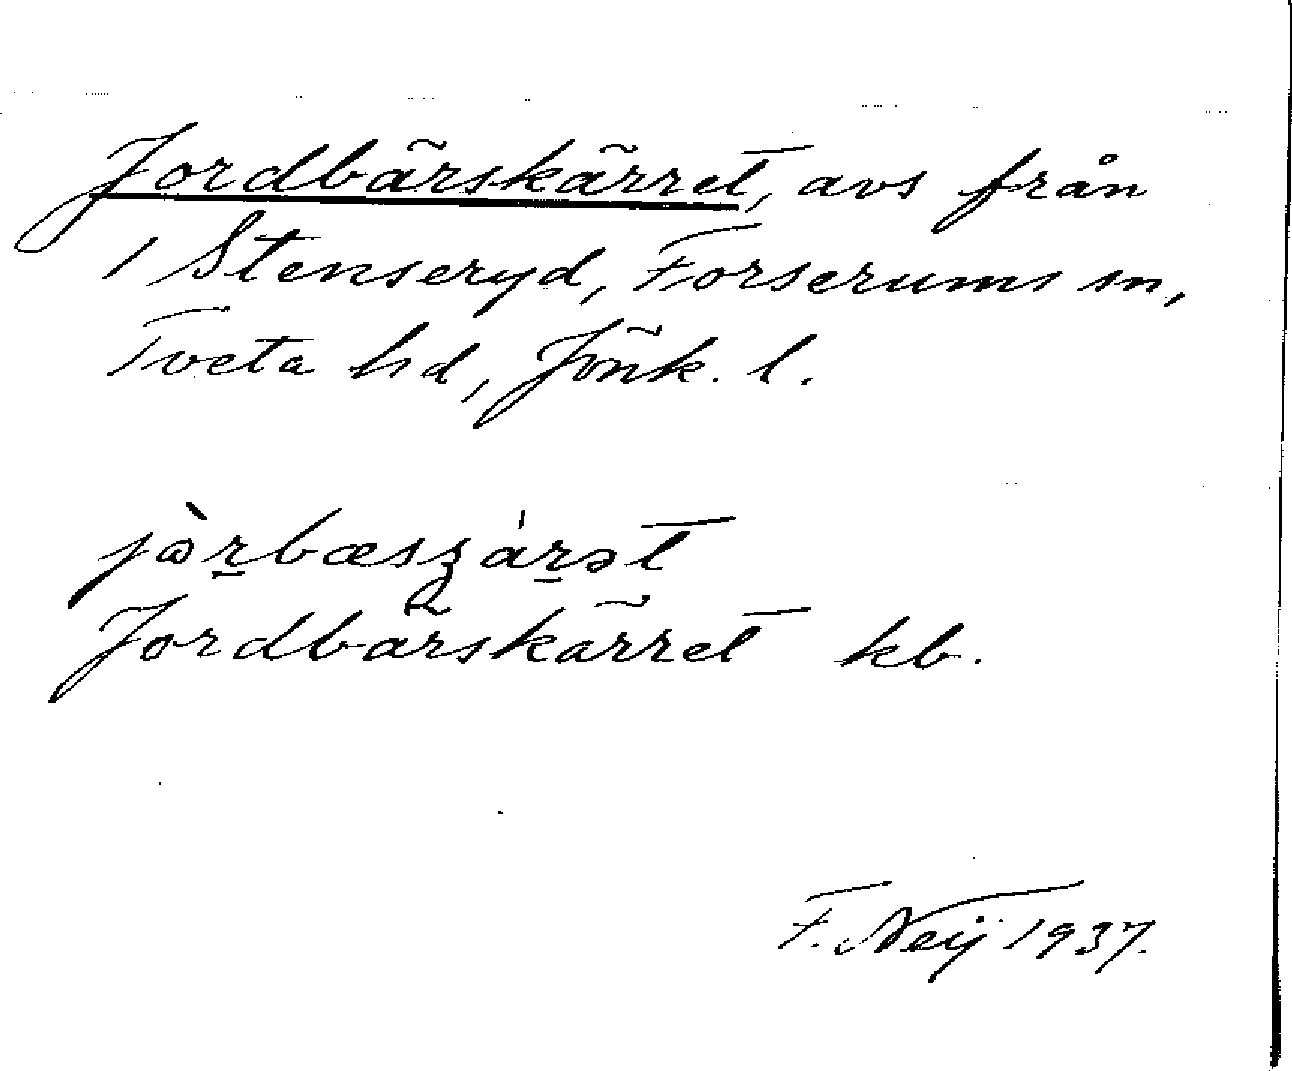 Jordbärskärret, avs från
1 Stenseryd, Forserums sn,
Tveta hd, Jönk. l.
Jordbärskärret kb.
F. Neij 1937.